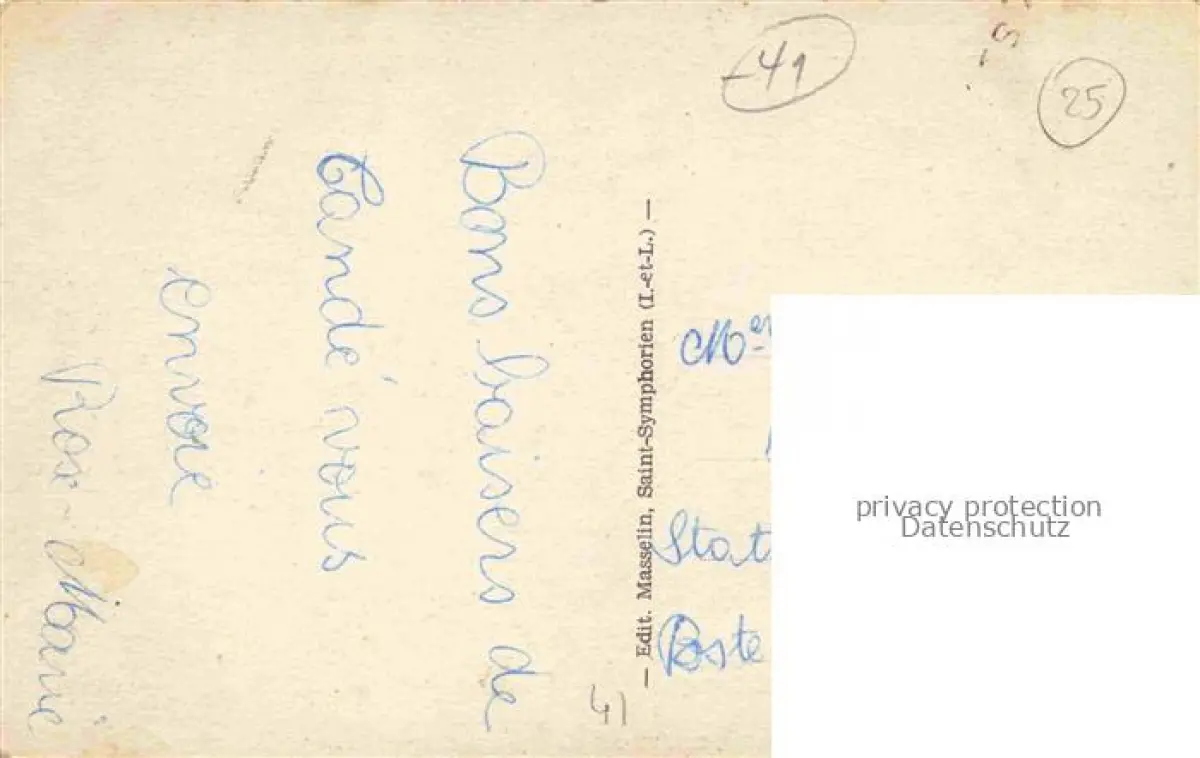 Bons baisers de
Candé vous
envoie
Rose-Marie
— Edit. Masselin, Saint-Symphorien (I.-et-L.) —
-41
25
Poste
41
privacy protection
Datenschutz